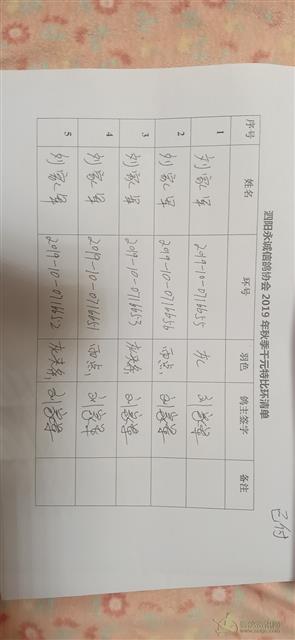 已付
泗阳永诚信鸽协会 2019 年秋季千元特比环清单
序号 姓名 环号 羽色 鸽主签字 备注
1 刘家军 2019-10-0716655 灰 刘家军
2 刘家军 2019-10-0716656 雨点 刘家军
3 刘家军 2019-10-0716653 刘家军
4 刘家军 2019-10-0716651 雨点 刘家军
5 刘家军 2019-10-0716652 刘家军